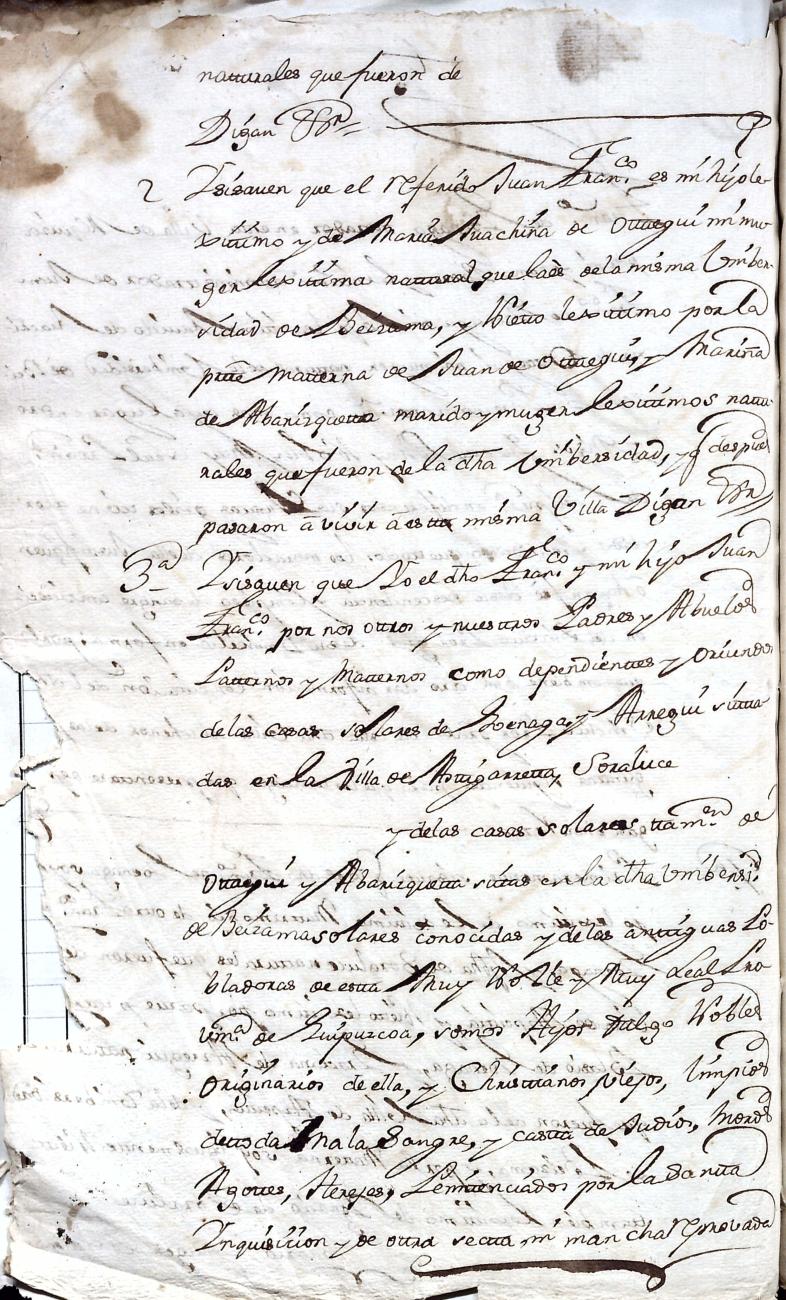 naturales que fueron de
Digan &ª
2 Ysisauen que el rreferido Juan Franco. es mi hijo le-
xitimo y de Maria Juachina de Otaegui mi mu-
ger lexitima natural que laes de la misma Vniber-
sidad de Beizama, y Nieto lexitimo por la
pte Materna de Juan de Otaegui, y Mariña
de Abarizqueta marido y muger lexitimos natu-
rales que fueron de la dha Vnibersidad, y q despues
pasaron a vivir a esta misma Villa Digan &ª
3ª Ysisauen que Yo el dho Franco. y mi hijo Juan
Franco. por nos otros y nuestros Padres y Abuelos
Paternos y Maternos como dependientes y oriundos
delas casas solares de Zoenaga, y Arregui sitta
das en la Villa de Astigarreta, Soraluce
y delas casas solares tamn de
Otaegui y Abarizqueta sitas en la dha Vnibersid.
de Beizama solares conocidas y delas antiguas Po-
bladoras de esta Muy Noble y Muy Leal Pro-
vinª de Guipuzcoa, somos Hijos dalgo Nobles
originarios de ella, y Christianos viejos, limpios
detoda Mala Sangre, y casta de Judios, Moros
Agotes, Herejes, Penitenciados por la Santa
Ynquisicion y de otra secta ni mancha rreprovada